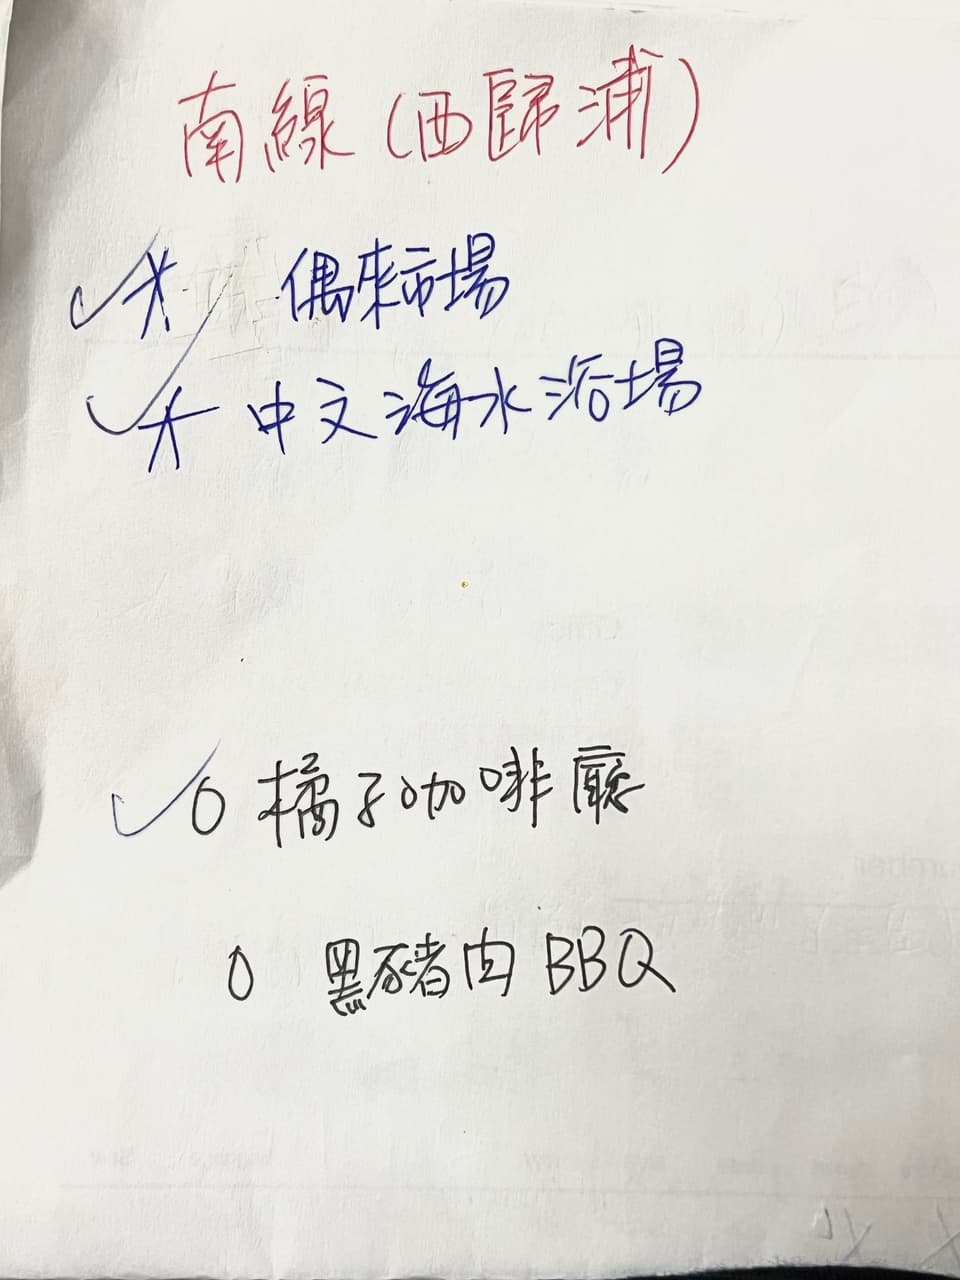 南線(西歸浦)
偶來市場
中文海水浴場
橘子咖啡廳
黑豬肉 BBQ